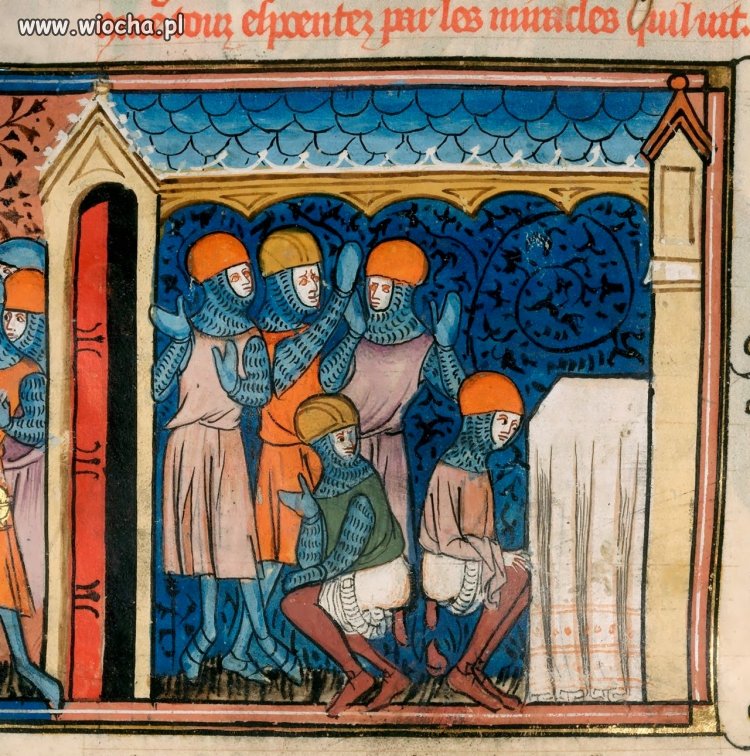 www.wiocha.pl
espoentez par les miracles quil uit.